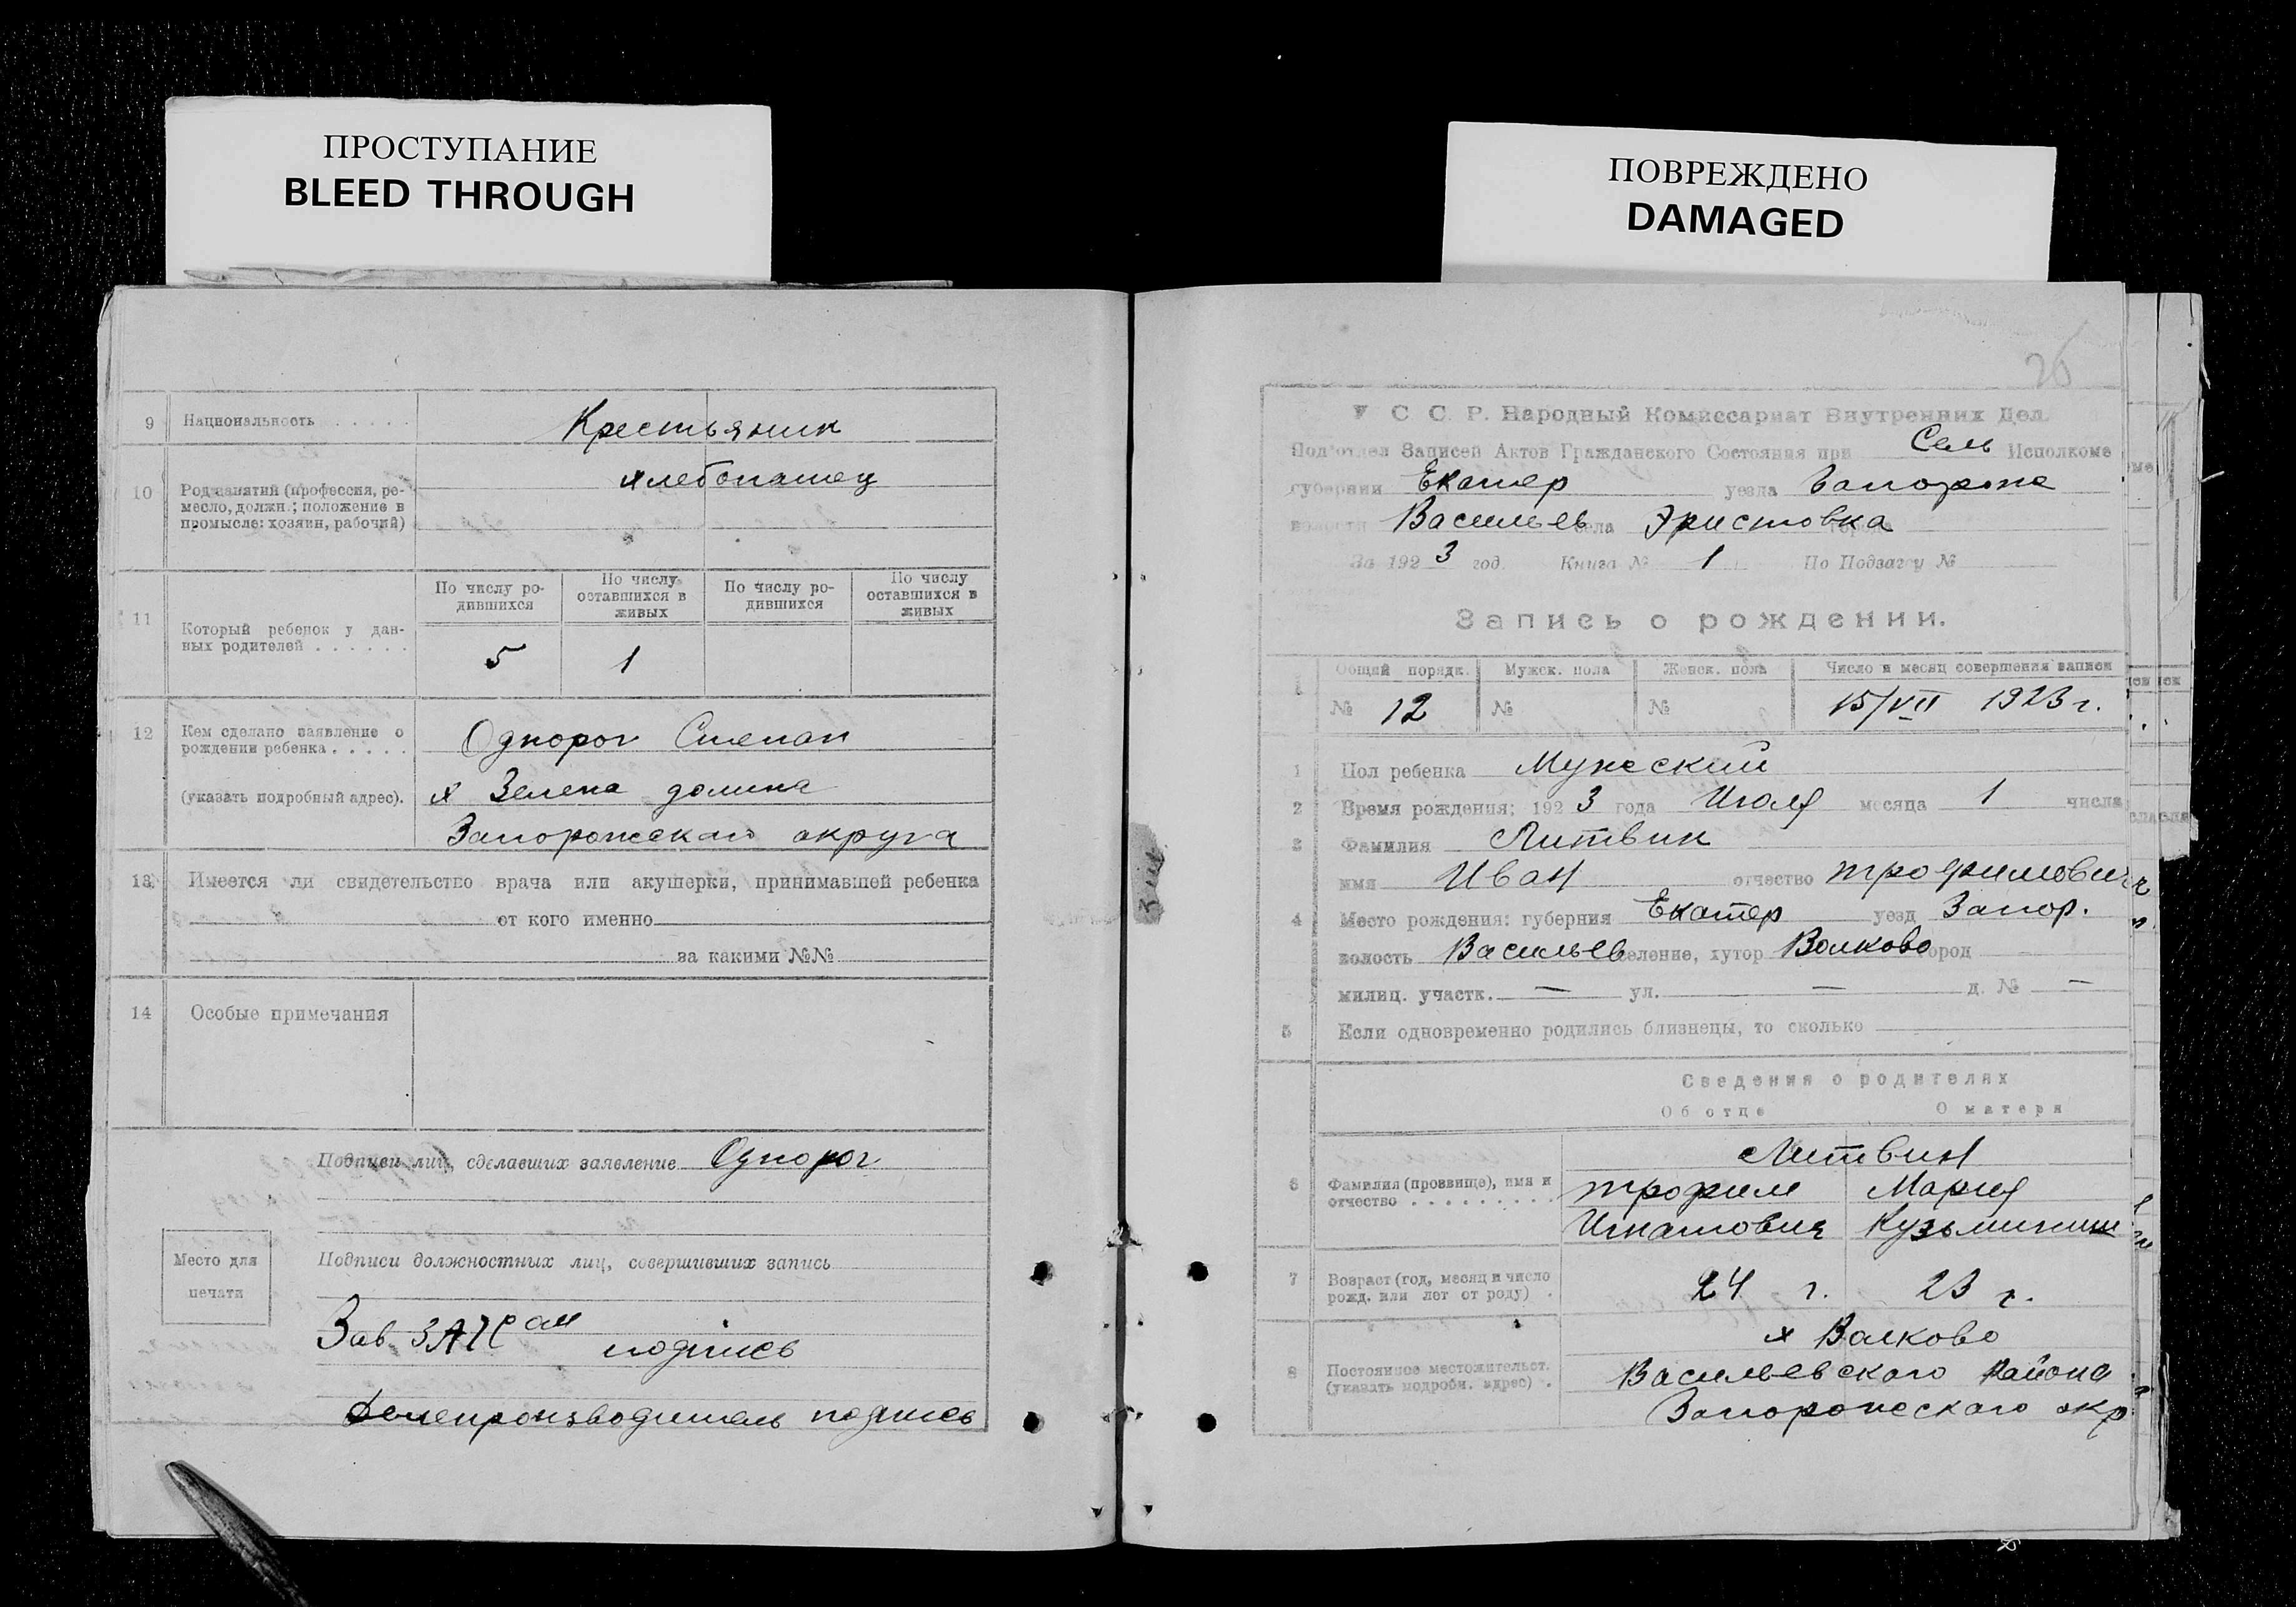 ПРОСТУПАНИЕ
BLEED THROUGH
9 Национальность . . . . . Крестьяник
хлебопашец
10 Род занятий (профессия, ре-
месло, должн.; положение в
промысле: хозяин, рабочий)
11 Который ребенок у дан-
ных родителей . . . . . .
По числу ро-
дившихся
По числу
оставшихся в
живых
По числу ро-
дившихся
По числу
оставшихся в
живых
5 1
12 Кем сделано заявление о
рождении ребенка . . . . .
Однорог Степан
(указать подробный адрес). х Зелена долина
Запорожскаго округа
13 Имеется ли свидетельство врача или акушерки, принимавшей ребенка
от кого именно
за какими №№
14 Особые примечания
Подписи лиц, сделавших заявление Однорог
Место для
печати
Подписи должностных лиц, совершивших запись
Зав. ЗАГС ом подпись
Делепроизводитель подпись
ПОВРЕЖДЕНО
DAMAGED
26
У. С. С. Р. Народный Комиссариат Внутренних Дел.
Под'отдел Записей Актов Гражданского Состояния при Сель Исполкоме
губернии Екатер уезда Запорож
волости Васильев села Эристовка города
За 1923 год. Книга № 1 По Подзагсу №
Запись о рождении.
Общий порядк. Мужск. пола Женск. пола Число и месяц совершения записи
№ 12 № № 15/VII 1923 г.
1 Пол ребенка Мужеский
2 Время рождения: 1923 года Июля месяца 1 числа
3 Фамилия Литвин
имя Иван отчество Трофимович
4 Место рождения: губерния Екатер уезд Запор.
волость Васильев селение, хутор Волково город
милиц. участк. — ул. — д. № —
5 Если одновременно родились близнецы, то сколько
Сведения о родителях
Об отце О матери
Литвин
6 Фамилия (прозвище), имя и
отчество . . . . . . . . . .
Трофим Мария
Игнатович Кузьминиш
7 Возраст (год, месяц и число
рожд. или лет от роду) .
24 г. 23 г.
х Волково
8 Постоянное местожительст.
(указать подробн. адрес) .
Васильевского Района
Запорожескаго окр